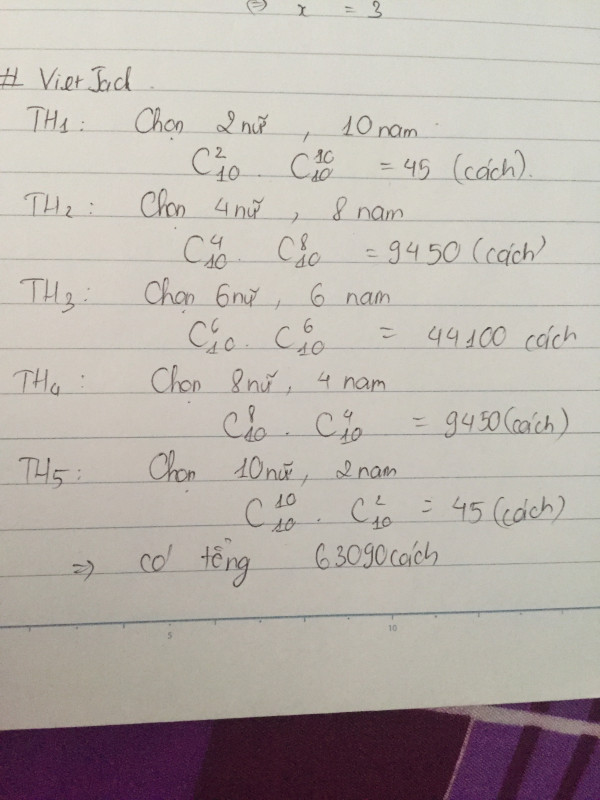 ⇔ x = 3
# VietJack.
TH1: Chọn 2 nữ, 10 nam
C²₁₀ . C¹⁰₁₀ = 45 (cách).
TH2: Chọn 4 nữ, 8 nam
C⁴₁₀ . C⁸₁₀ = 9450 (cách)
TH3: Chọn 6 nữ, 6 nam
C⁶₁₀ . C⁶₁₀ = 44100 cách
TH4: Chọn 8 nữ, 4 nam
C⁸₁₀ . C⁴₁₀ = 9450 (cách)
TH5: Chọn 10 nữ, 2 nam
C¹⁰₁₀ . C²₁₀ = 45 (cách)
⇒ có tổng 63090 cách
5 10